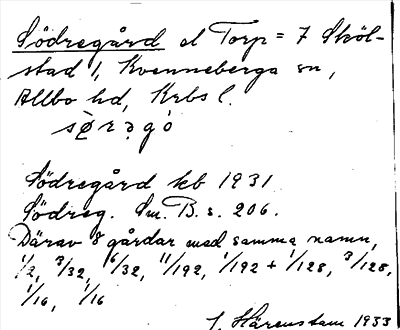 Södregård el Torp = 7 Sköl-
stad 1, Kvenneberga sn,
Allbo hd, Krbs l.
sø̀rəgó
Södregård kb 1931
Södreg. Sm. B. s. 206.
Därav 8 gårdar med samma namn,
1/2, 3/32, 6/32, 11/192, 1/192 + 1/128, 3/128,
1/16, 1/16
J. Härenstam 1933